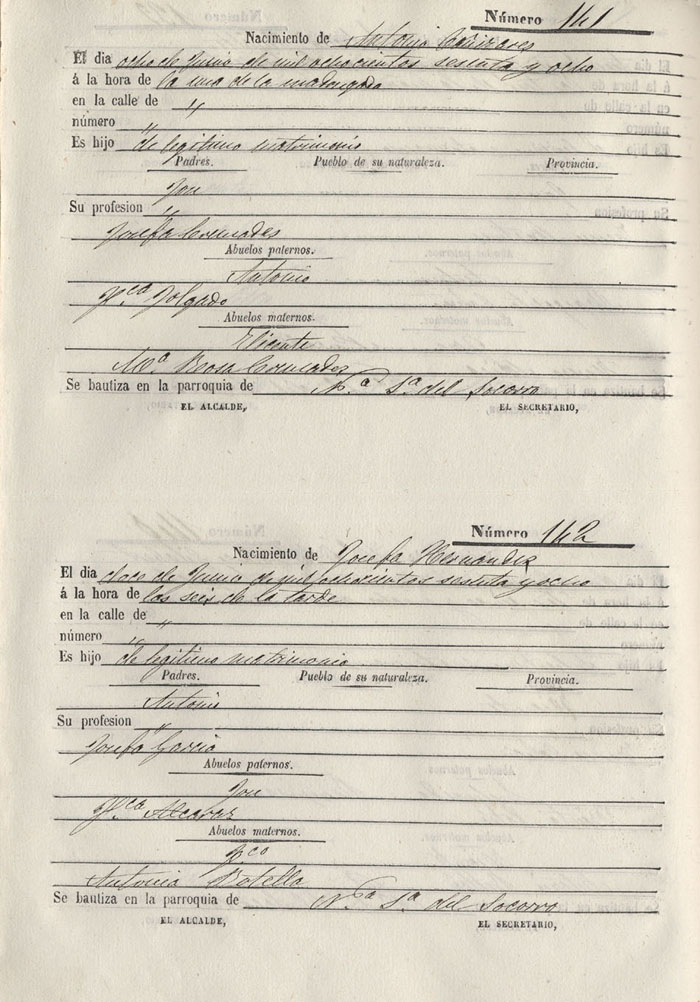 Número 141
Nacimiento de Antonio
El dia ocho de Junio de mil ochocientos sesenta y ocho
á la hora de la una de la madrugada
en la calle de "
número "
Es hijo de legitimo matrimonio
Padres. Pueblo de su naturaleza. Provincia.
Jose
Su profesion "
Josefa
Abuelos paternos.
Antonio
Fca
Abuelos maternos.
Vicente
Ma Rosa
Se bautiza en la parroquia de N.a S.a del Socorro
EL ALCALDE, EL SECRETARIO,
Número 142
Nacimiento de Josefa Hernandez
El dia doce de Junio de mil ochocientos sesenta y ocho
á la hora de las seis de la tarde
en la calle de "
número "
Es hijo de legitimo matrimonio
Padres. Pueblo de su naturaleza. Provincia.
Antonio
Su profesion "
Josefa Garcia
Abuelos paternos.
Jose
Fca Alcaraz
Abuelos maternos.
Fco
Antonia Botella
Se bautiza en la parroquia de N.a S.a del Socorro
EL ALCALDE, EL SECRETARIO,